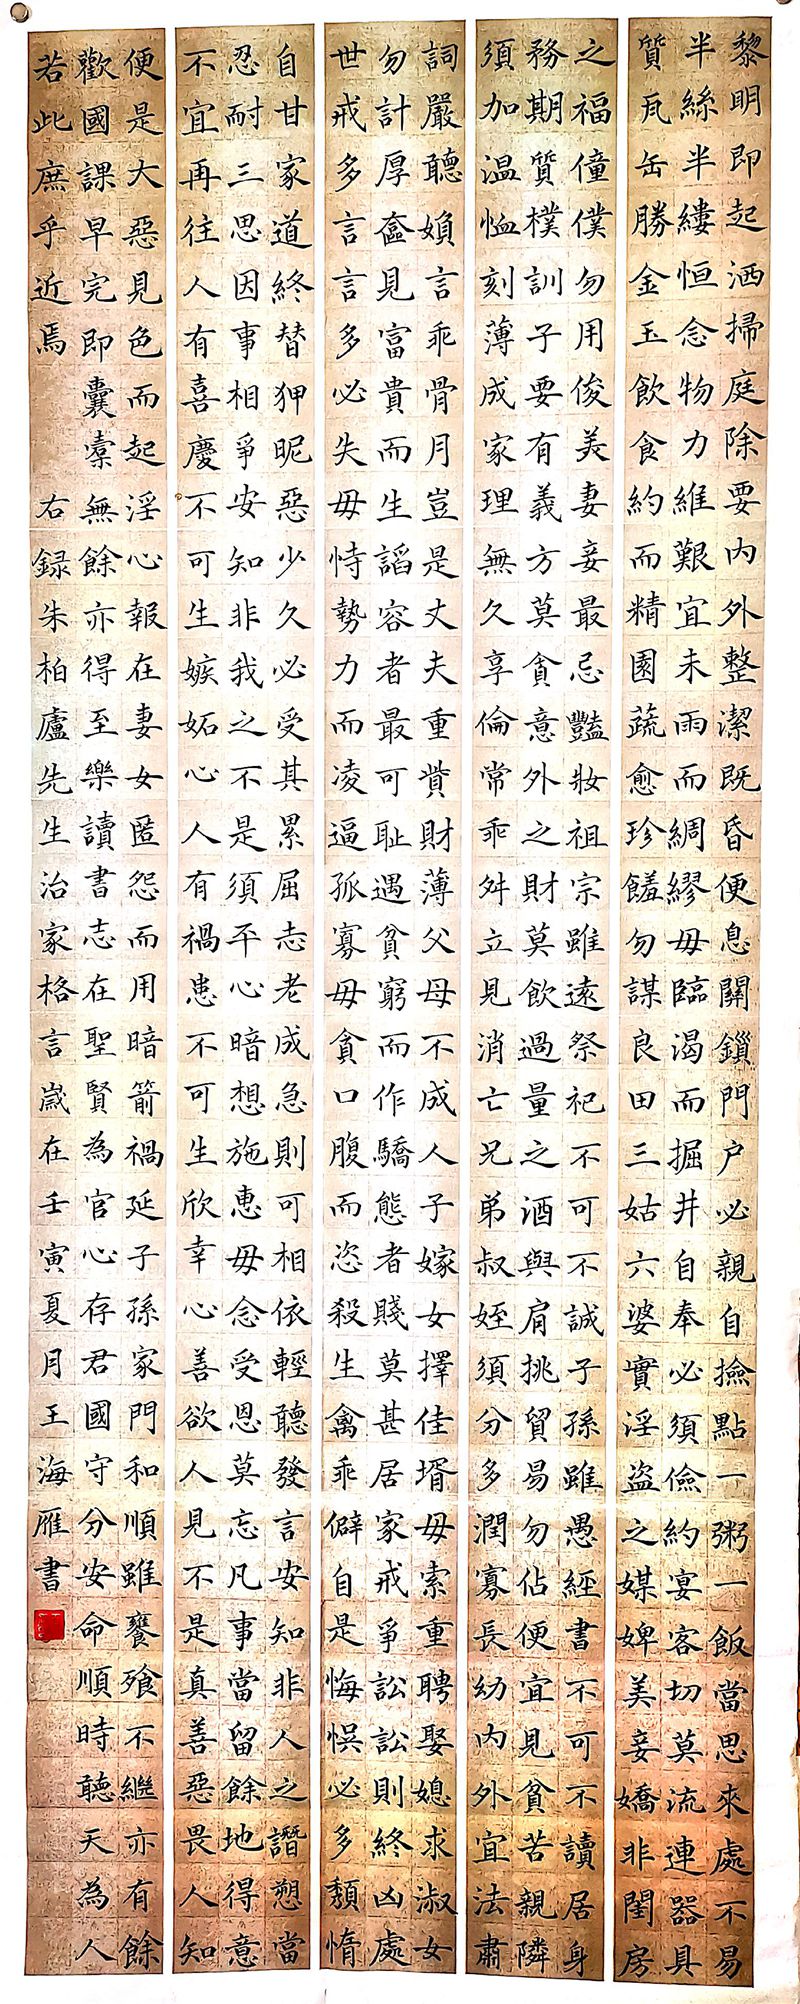 黎明即起洒掃庭除要内外整潔既昏便息關鎖門户必親自撿點一粥一飯當思來處不易
半絲半縷恒念物力維艱宜未雨而綢繆毋臨渴而掘井自奉必須儉約宴客切莫流連器具
質瓦缶勝金玉飲食約而精園蔬愈珍饈勿謀良田三姑六婆實淫盜之媒婢美妾嬌非閨房
之福僮僕勿用俊美妻妾最忌豔妝祖宗雖遠祭祀不可不誠子孫雖愚經書不可不讀居身
務期質樸訓子要有義方莫貪意外之財莫飲過量之酒與肩挑貿易勿佔便宜見貧苦親隣
須加温恤刻薄成家理無久享倫常乖舛立見消亡兄弟叔姪須分多潤寡長幼内外宜法肅
詞嚴聽婦言乖骨月豈是丈夫重貲財薄父母不成人子嫁女擇佳壻毋索重聘娶媳求淑女
勿計厚奩見富貴而生謟容者最可耻遇貧窮而作驕態者賤莫甚居家戒爭訟訟則終凶處
世戒多言言多必失毋恃勢力而凌逼孤寡毋貪口腹而恣殺生禽乖僻自是悔悞必多頽惰
自甘家道終替狎昵惡少久必受其累屈志老成急則可相依輕聽發言安知非人之譖愬當
忍耐三思因事相爭安知非我之不是須平心暗想施惠毋念受恩莫忘凡事當留餘地得意
不宜再往人有喜慶不可生嫉妬心人有禍患不可生欣幸心善欲人見不是真善惡畏人知
便是大惡見色而起淫心報在妻女匿怨而用暗箭禍延子孫家門和順雖饔飧不繼亦有餘
歡國課早完即囊橐無餘亦得至樂讀書志在聖賢為官心存君國守分安命順時聽天為人
若此庶乎近焉
右録朱柏廬先生治家格言歲在壬寅夏月王海雁書